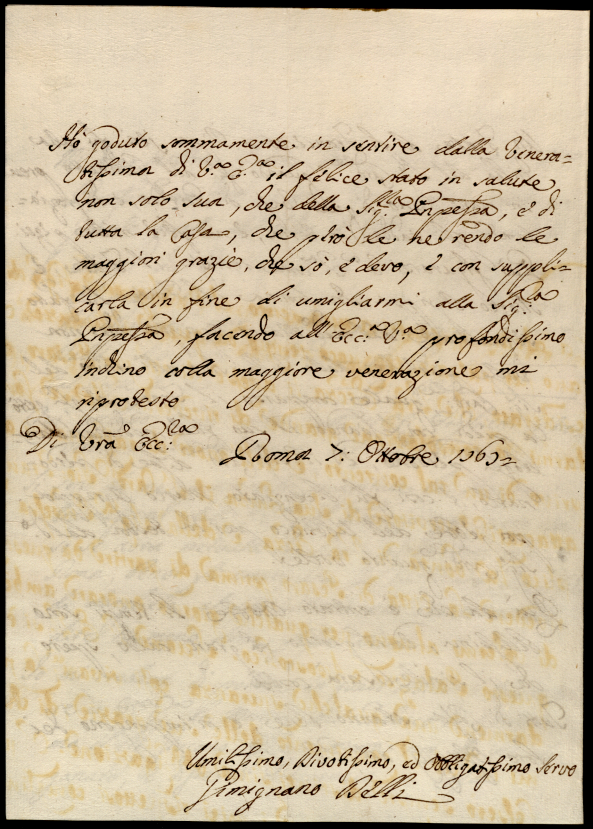 Hò goduto sommamente in sentire dalla Venera=
tissima di V.ra E.za il felice stato in salute
non solo sua, che della Sig.ra Pnpessa, e di
tutta la Casa, che però le ne rendo le
maggiori grazie, che sò, e devo, e con suppli=
carla in fine di umigliarmi alla Sig.ra
Pnpessa, facendo all'Ecc.a V.a profondissimo
inchino colla maggiore venerazione mi
riprotesto
Di Vra Ecc.za Roma 7: Ottobre
Umilissimo, Divotissimo, ed Obbligatissimo Servo
Gimignano Belli